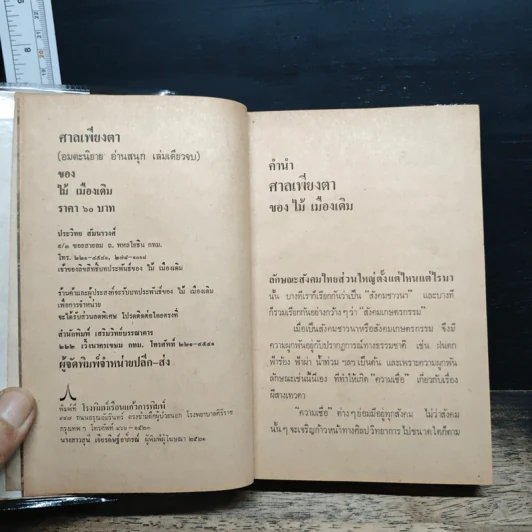 ศาลเพียงตา
(อมตะนิยาย อ่านสนุก เล่มเดียวจบ)
ของ
ไม้ เมืองเดิม
ราคา ๖๐ บาท
ประวิทย สัมมาวงศ์
๕/๓ ซอยสายลม ถ. พหลโยธิน กทม.
โทร.
เจ้าของลิขสิทธิ์บทประพันธ์ของ ไม้ เมืองเดิม
ร้านค้าและผู้ประสงค์จะรับบทประพันธ์ของ ไม้ เมืองเดิม
เพื่อการจำหน่าย
จะได้รับส่วนลดพิเศษ โปรดติดต่อโดยตรงที่
สำนักพิมพ์ เสริมวิทย์บรรณาคาร
๒๒๒ เวิ้งนาครเขษม กทม. โทรศัพท์ ๒๒๑-๔๕๔๑
ผู้จัดพิมพ์จำหน่ายปลีก-ส่ง
พิมพ์ที่ โรงพิมพ์เรือนแก้วการพิมพ์
กรุงเทพ ฯ โทรศัพท์
ผู้พิมพ์ผู้โฆษณา ๒๕๒๑
คำนำ
ศาลเพียงตา
ของ ไม้ เมืองเดิม
ลักษณะสังคมไทยส่วนใหญ่ตั้งแต่ไหนแต่ไรมา
นั้น บางทีเราก็เรียกกันว่าเป็น "สังคมชาวนา" และบางที
ก็รวมเรียกกันอย่างกว้าง ๆ ว่า "สังคมเกษตรกรรม"
เมื่อเป็นสังคมชาวนาหรือสังคมเกษตรกรรม จึงมี
ความผูกพันอยู่กับปรากฏการณ์ทางธรรมชาติ เช่น ฝนตก
ฟ้าร้อง ฟ้าผ่า น้ำท่วม ฯลฯ เป็นต้น และเพราะความผูกพัน
ลักษณะเช่นนี้นี่เอง ที่ทำให้เกิด "ความเชื่อ" เกี่ยวกับเรื่อง
ผีสางเทวดา
"ความเชื่อ" ต่าง ๆ ย่อมมีอยู่ทุกสังคม ไม่ว่าสังคม
นั้น ๆ จะเจริญก้าวหน้าทางศิลปวิทยาการไปขนาดใดก็ตาม